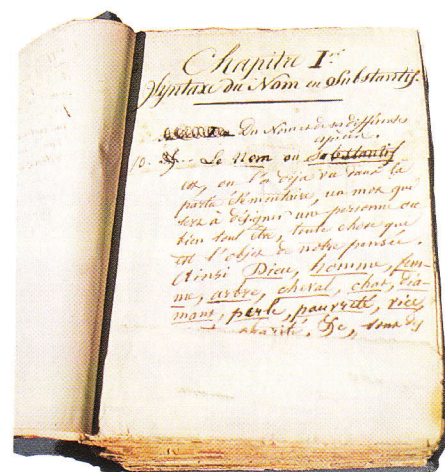 Chapitre I.er
Syntaxe du Nom ou Substantif.
Du Nom et de ses différentes
espèces.
10. Le Nom ou Substantif
est, on l'a déja vu dans la
partie élémentaire, un mot qui
sert à désigner une personne ou
bien tout être, toute chose qui
est l'objet de notre pensée.
Ainsi Dieu, homme, fem-
me, arbre, cheval, chat, dia-
mant, perle, pauvreté, vice,
charité, &c, sont des